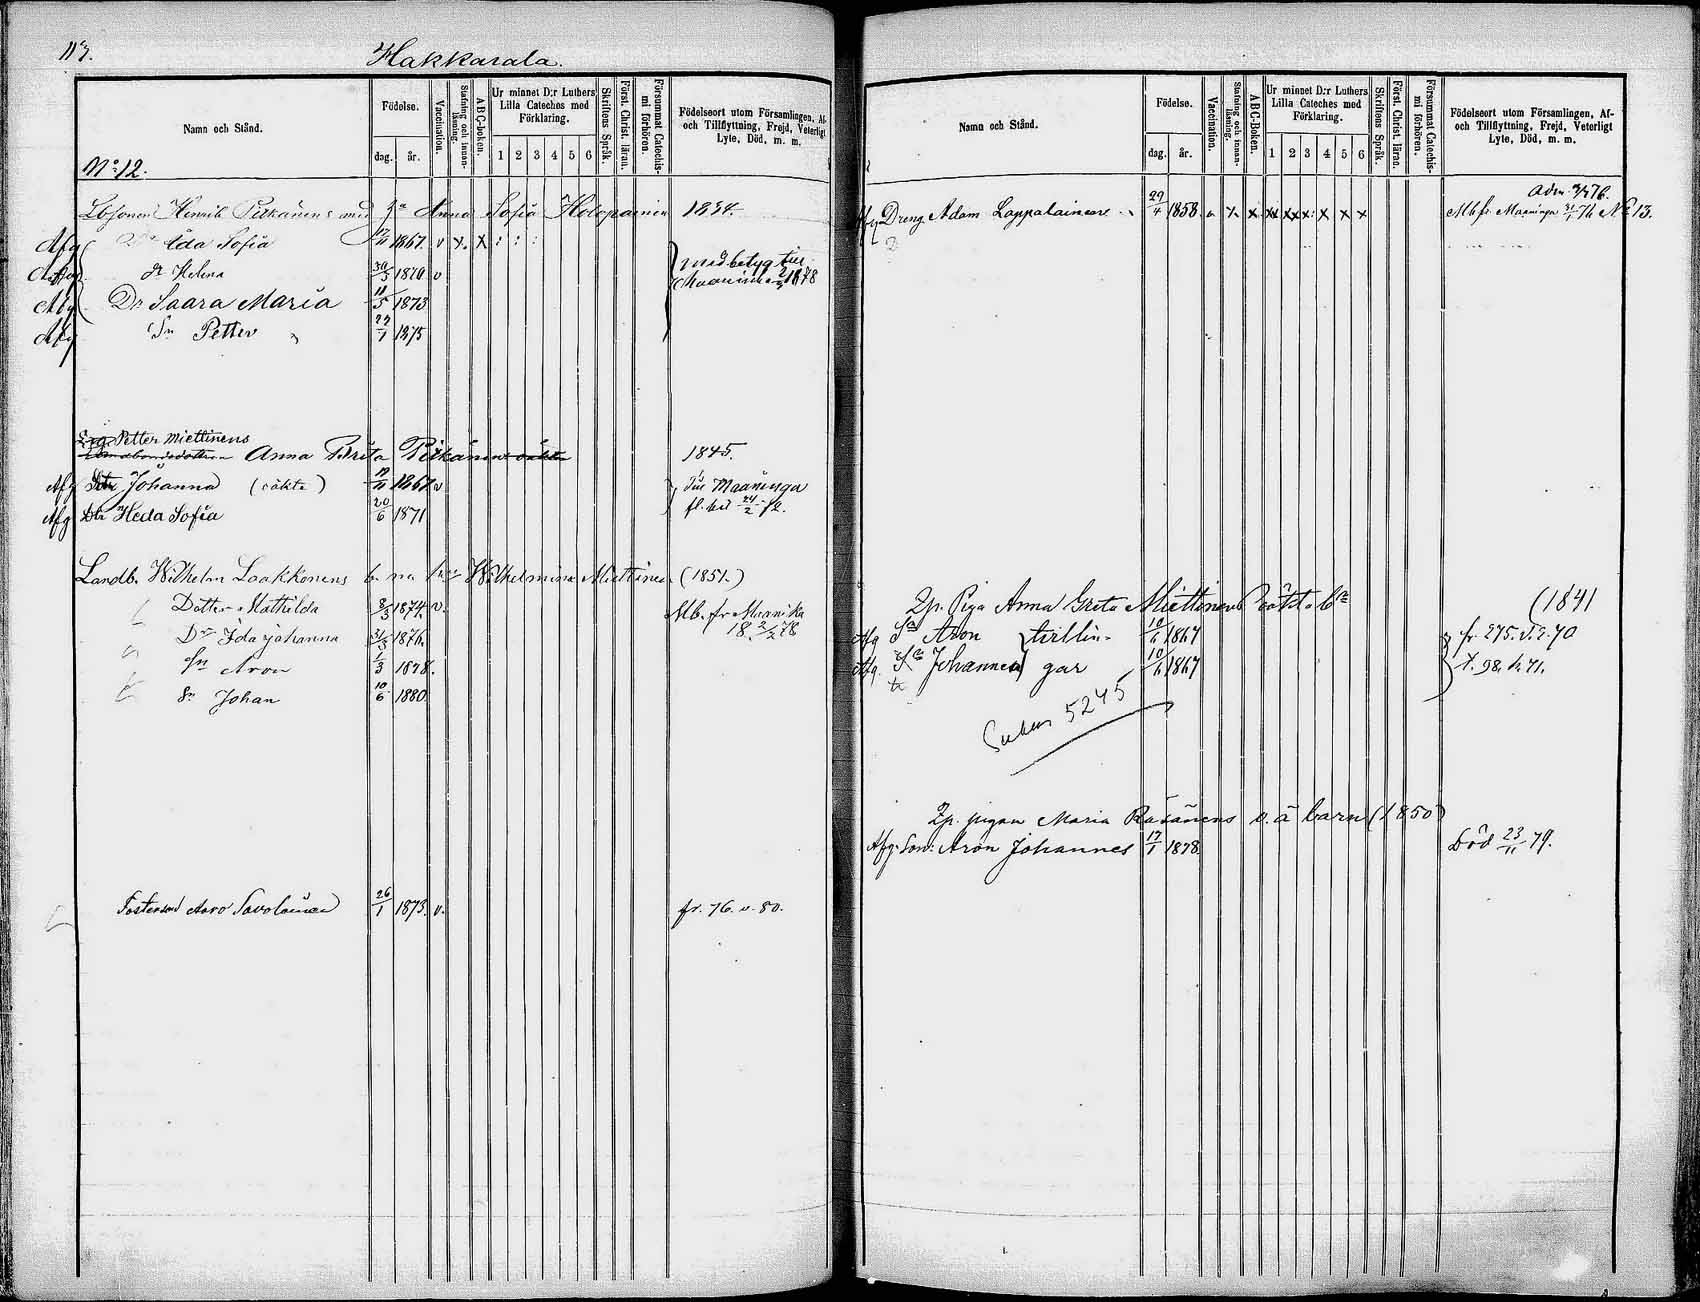 113.
Hakkarala.
Namn och Stånd.
Födelse.
dag. år.
Vaccination.
Stafning och innanläsning.
ABC-Boken.
Ur minnet D:r Luthers Lilla Cateches med Förklaring.
1 2 3 4 5 6
Skriftens Språk.
Först. Christ. läran.
Försummat Catechismi förhören.
Födelseort utom Församlingen, Af- och Tillflyttning, Frejd, Veterligt Lyte, Död, m. m.
No 12.
Henrik Pitkänens Anna Sofia Holopainen 1834.
Afg Dr Ida Sofia 17/11 1867. v x. x : : :
Afg dr Helena 30/3 1870 v
med betyg till
Maaninka 1878
Afg Dr Saara Maria 11/5 1873
Afg Sn Petter 27/1 1875
Petter Miettinens
Anna Brita Pitkänens oäkta 1845.
Afg Dtr Johanna (oäkta) 1867 v
till Maaninga
Afg Dtr Heda Sofia 20/6 1871
fl. hit 24/2 72.
Landb. Wilhelm Laakkonens b. m. Wilhelmina Miettinen (1851.)
Dotter Mathilda 8/3 1874. v.
Mb. fr Maaninka
18 2/2 78
Dr Ida Johanna 31/3 1876.
Sn Aron 1/3 1878.
Sn Johan 10/6 1880.
Fosterson Aaro Savolainen 26/1 1873. v.
fr. 76. v. 80.
Namn och Stånd.
Födelse.
dag. år.
Vaccination.
Stafning och innanläsning.
ABC-Boken.
Ur minnet D:r Luthers Lilla Cateches med Förklaring.
1 2 3 4 5 6
Skriftens Språk.
Först. Christ. läran.
Försummat Catechismi förhören.
Födelseort utom Församlingen, Af- och Tillflyttning, Frejd, Veterligt Lyte, Död, m. m.
Afg Dreng Adam Lappalainen 29/4 1858. x. x. x xx xx x: x x x
Adm. 76.
Mb fr Maaninga 76 No 13.
Zp. Piga Anna Greta Miettinens oäkta bn (1841
Afg Sn Aron tvillin- 10/6 1867
fr. 275. v. s. 70
Afg. Sn Johannes gar 10/6 1867
t. 98. h. 71.
5245
Zp. pigan Maria Räsänens o. ä barn (1850)
Afg. Son: Aron Johannes 17/1 1878.
Död 23/11 79.